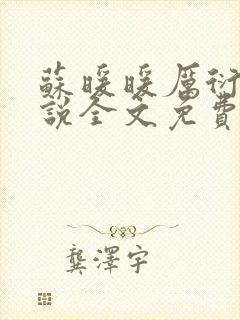 蘇暖暖厲衍
說全文免費
龔澤宇